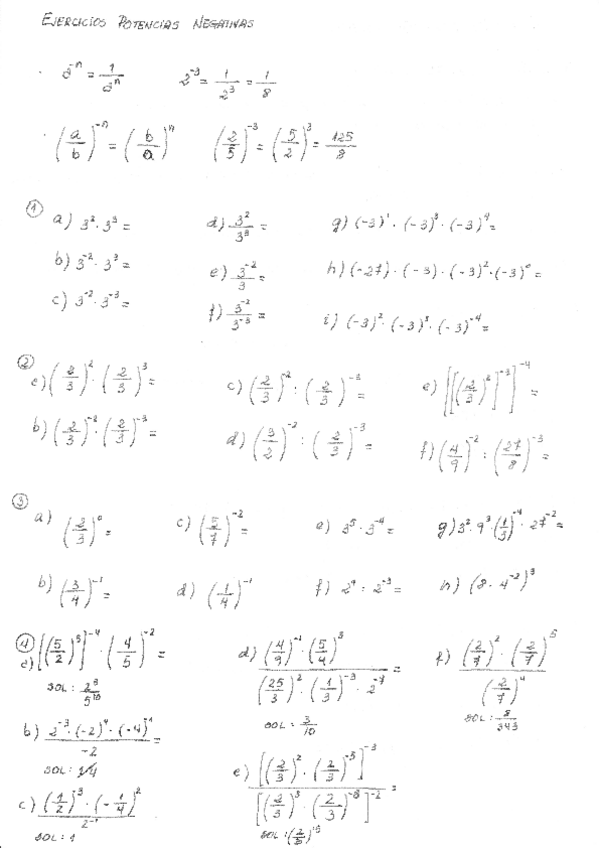 EJERCICIOS POTENCIAS NEGATIVAS
· a⁻ⁿ = 1/aⁿ   2⁻³ = 1/2³ = 1/8
· (a/b)⁻ⁿ = (b/a)ⁿ   (2/5)⁻³ = (5/2)³ = 125/8
① a) 3²·3³ =   d) 3²/3³ =   g) (-3)¹·(-3)³·(-3)⁴ =
b) 3⁻²·3³ =   e) 3⁻²/3 =   h) (-27)·(-3)·(-3)²·(-3)⁰ =
c) 3⁻²·3⁻³ =   f) 3⁻²/3⁻³ =   i) (-3)²·(-3)³·(-3)⁻⁴ =
② a) (2/3)²·(2/3)³ =   c) (2/3)⁻²:(2/3)⁻³ =   e) [[(2/3)²]⁻³]⁻⁴ =
b) (2/3)⁻²·(2/3)⁻³ =   d) (3/2)⁻²:(2/3)⁻³ =   f) (4/9)⁻²:(27/8)⁻³ =
③ a) (2/3)⁰ =   c) (5/7)⁻² =   e) 3⁵·3⁻⁴ =   g) 3²·9³·(1/3)⁻⁴·27⁻² =
b) (3/4)⁻¹ =   d) (1/4)⁻¹   f) 2⁴:2⁻³ =   h) (8·4⁻²)³
④ a) [(5/2)³]⁻⁴·(4/5)⁻² =   d) (4/9)⁻¹·(5/4)³ / (25/3)²·(1/3)⁻³·2⁻⁷ =   f) (2/7)²·(2/7)⁵ / (2/7)⁴
SOL: 2⁸/5¹⁰   SOL: 3/10   SOL: 8/343
b) 2⁻³·(-2)⁴·(-4)⁻¹ / -2 =   e) [(2/3)²·(2/3)⁻⁵]⁻³ / [(2/3)³·(2/3)⁻⁸]⁻² =
SOL: 1/4
c) (1/2)⁻³·(-1/4)² / 2⁻¹
SOL: 1